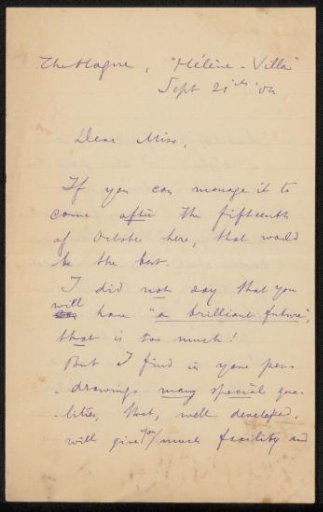 The Hague, "Hélène-Villa"
Sept 21th '04
Dear Miss,
If you can manage it to
come after the fifteenth
of October here, that would
be the best.
I did not say that you
will
have "a brilliant future",
that is too much!
But I find in your pen-
-drawings many special qua-
lities, that, well developed,
will give you much facility and